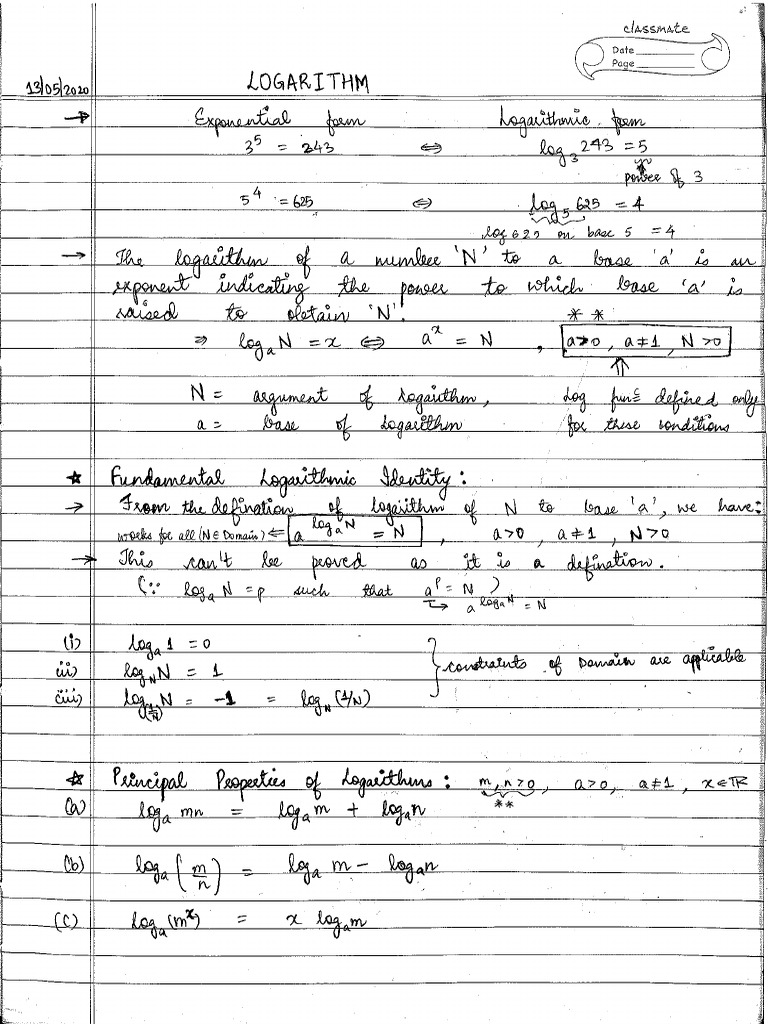 classmate
Date
Page
13/05/2020
LOGARITHM
→ Exponential form Logarithmic form
3⁵ = 243 ⇔ log₃243 = 5
power of 3
5⁴ = 625 ⇔ log₅625 = 4
log 625 on base 5 = 4
→ The logarithm of a number 'N' to a base 'a' is an
exponent indicating the power to which base 'a' is
raised to obtain 'N'. * *
⇒ logₐN = x ⇔ aˣ = N , a>0, a≠1, N>0
⇑
N = argument of logarithm, Log funⁿ defined only
a = base of Logarithm for these conditions
☆ Fundamental Logarithmic Identity:
→ From the defination of logarithm of N to base 'a', we have:
works for all (N ∈ Domain) ⇐ a^(logₐN) = N , a>0, a≠1, N>0
→ This can't be proved as it is a defination.
(∵ logₐN = p such that aᵖ = N )
↳ a^(logₐN) = N
(i) logₐ1 = 0
(ii) log_N N = 1 } constraints of Domain are applicable
(iii) log_(1/N) N = -1 = log_N (1/N)
☆ Principal Properties of Logarithms: m, n>0, a>0, a≠1, x∈ℝ
**
(a) logₐ mn = logₐm + logₐn
(b) logₐ(m/n) = logₐ m − logₐn
(c) logₐ(mˣ) = x logₐm